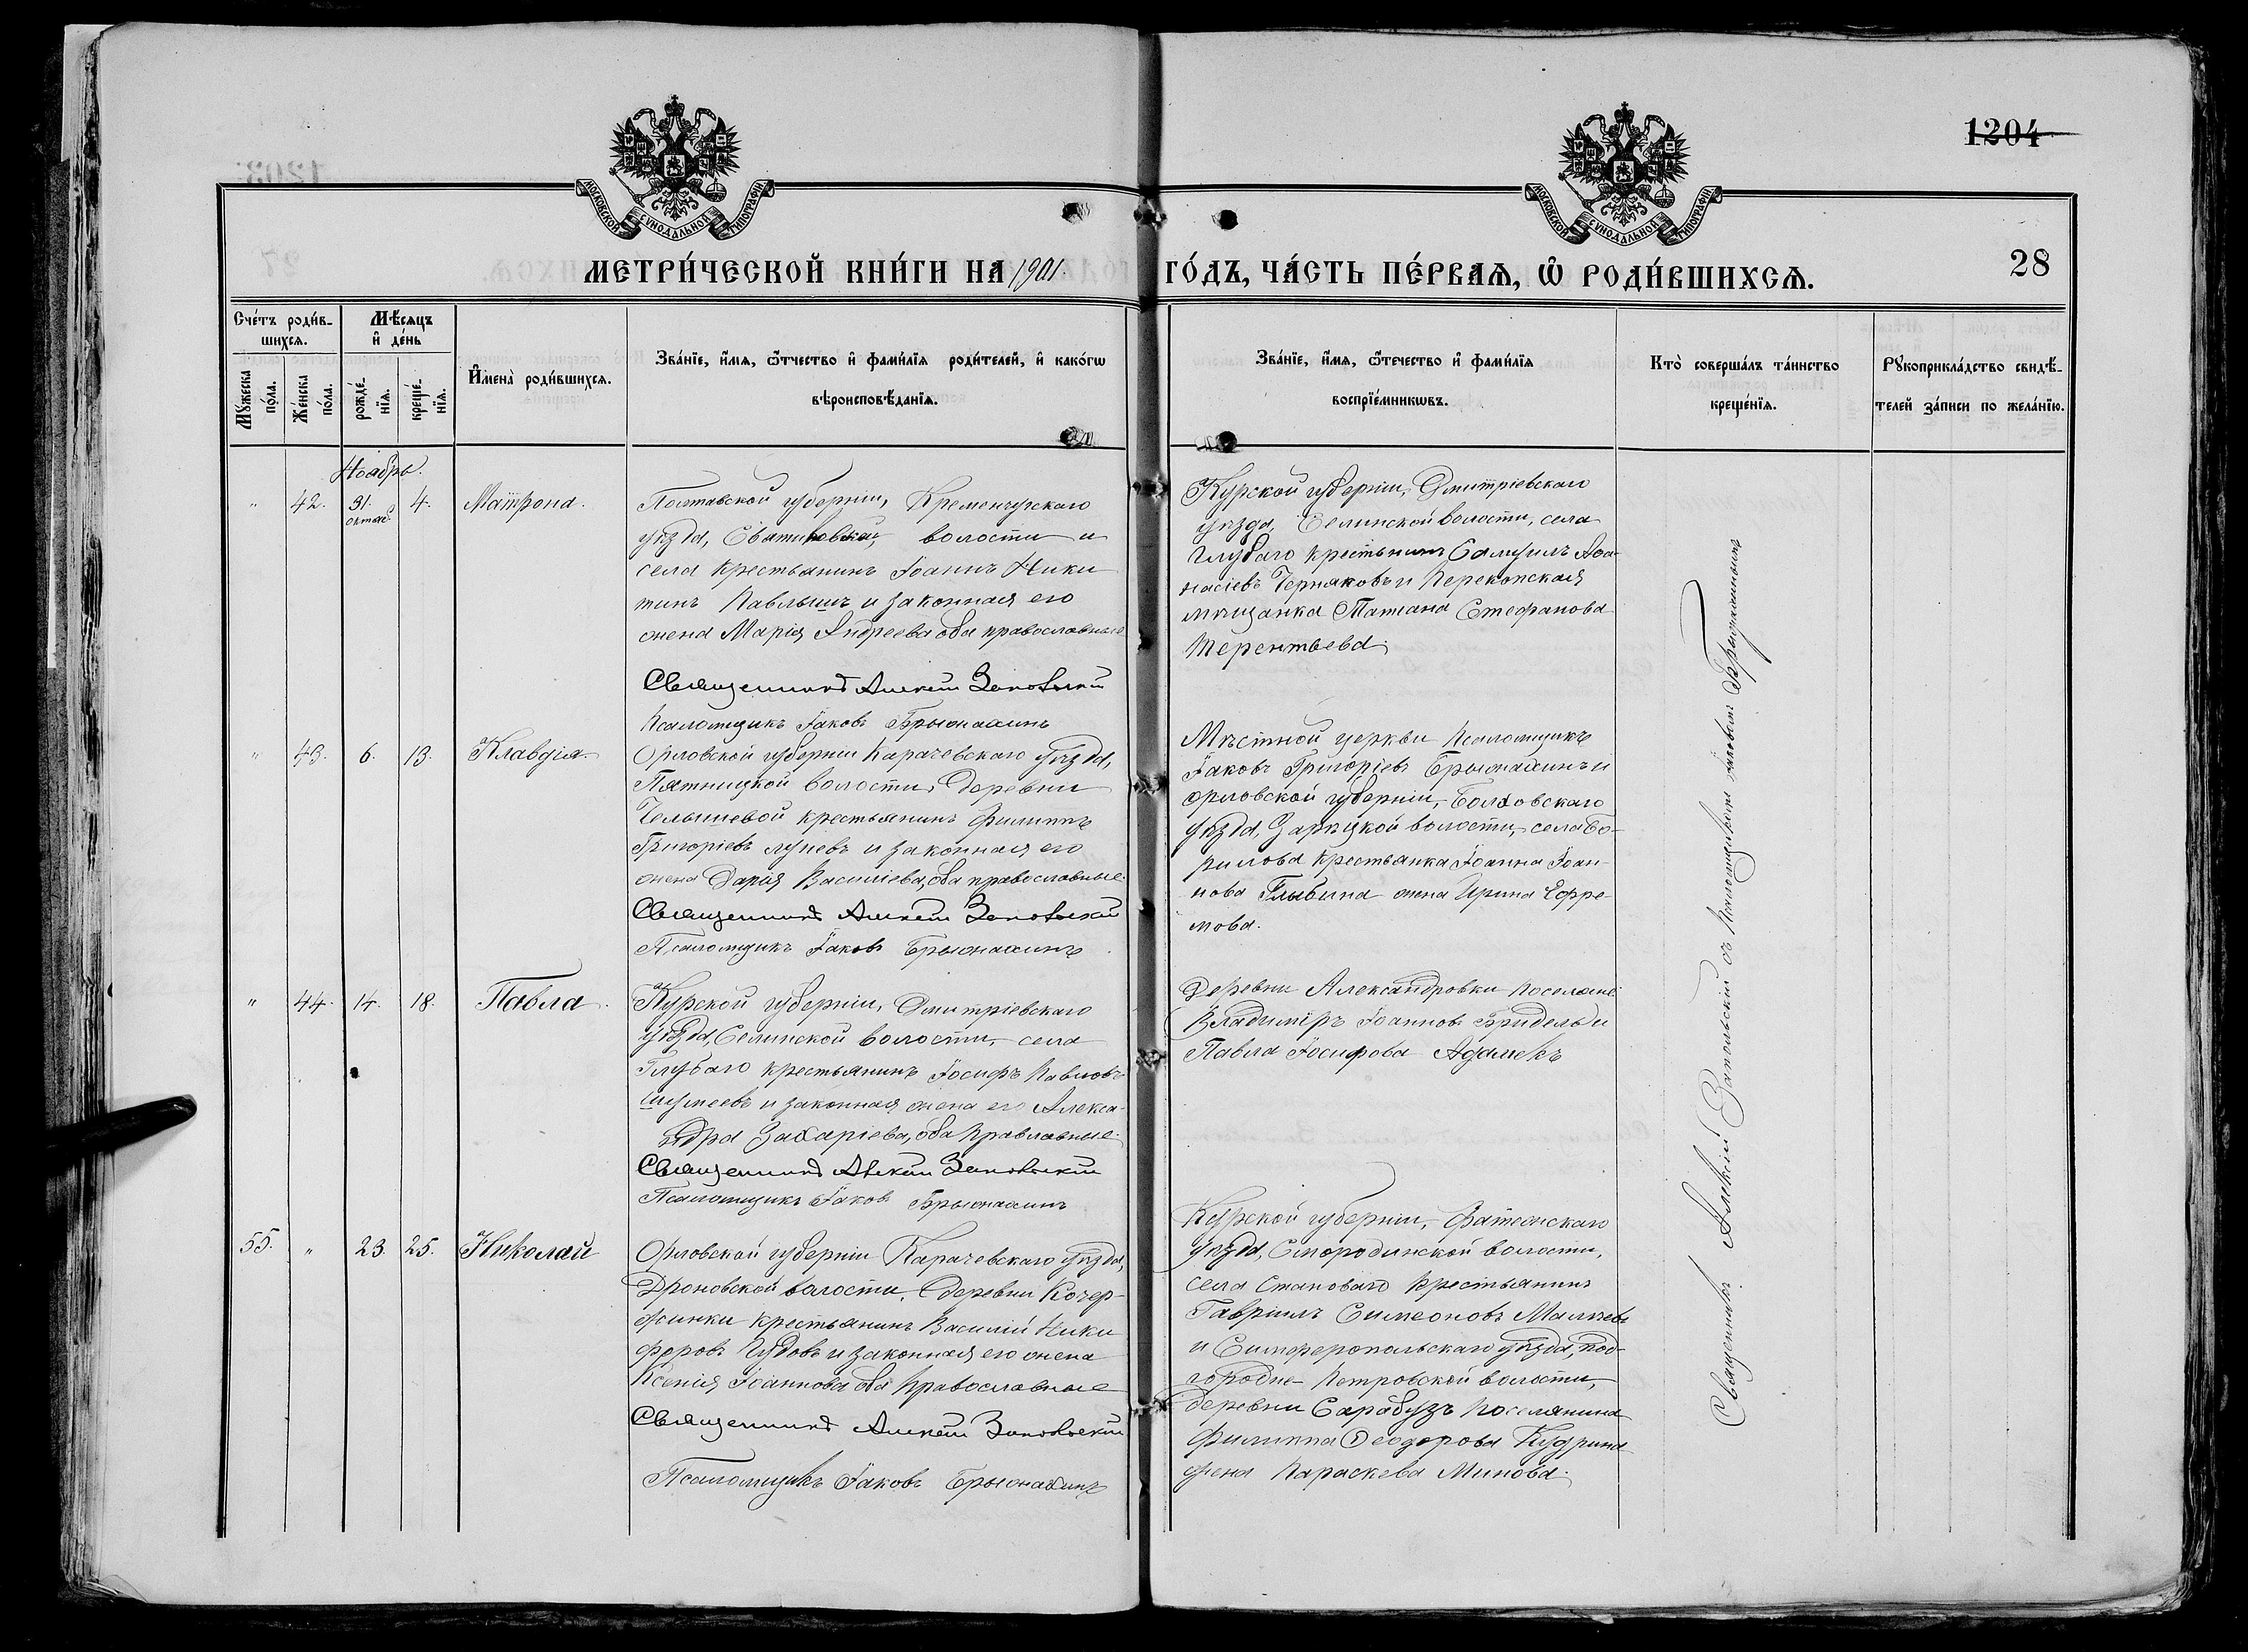 1204
МОСКОВСКОЙ СУНОДАЛЬНОЙ ТИПОГРАФІИ
МОСКОВСКОЙ СУНОДАЛЬНОЙ ТИПОГРАФІИ
МЕТРИ́ЧЕСКОЙ КНИ́ГИ НА 1901. ГО́ДЪ, ЧА́СТЬ ПЕ́РВАѦ, Ѽ РОДИ́ВШИХСѦ.
28
Сче́тъ роди́в-
шихсѧ.
Мѣ́сѧцъ
и҆ де́нь
Мꙋ́жеска
по́ла.
Же́нска
по́ла.
рожде́-
нїѧ.
креще́-
нїѧ.
И҆мена̀ роди́вшихсѧ.
Зва́нїе, и҆́мѧ, ѻ҆́тчество и҆ фами́лїѧ роди́телей, и҆ како́гѡ
вѣроисповѣ́данїѧ.
Зва́нїе, и҆́мѧ, ѻ҆́течество и҆ фами́лїѧ
воспрїе́мникѡвъ.
Кто̀ соверша́лъ та́инство
креще́нїѧ.
Рꙋкоприкла́дство свидѣ́-
телей за́писи по жела́нїю.
Ноябрь.
" 42. 31. октяб. 4. Матрона.
Полтавской губерніи, Кременчугскаго
уѣзда, волости и
села крестьянинъ Іоаннъ Ники
тинъ Павлышъ и законная его
жена Марія Андреева оба православные
Священникъ Алексій Запольскій
Псаломщикъ Іаковъ Брыжахинъ
Курской губерніи, Дмитріевскаго
уѣзда, Селинской волости, села
Глубаго крестьянинъ Самуилъ Аѳа-
насіевъ Черняковъ и Перекопская
мѣщанка Татіана Стефанова
Терентьева
" 43. 6. 13. Клавдія.
Орловской губерніи Карачевскаго уѣзда,
Пятницкой волости, деревни
Телышевой крестьянинъ Филиппъ
Григоріевъ Луневъ и законная его
жена Дарія Василіева, оба православные.
Священникъ Алексій Запольскій
Псаломщикъ Іаковъ Брыжахинъ
Мѣстной церкви псаломщикъ
Іаковъ Григоріевъ Брыжахинъ и
орловской губерніи, Болховскаго
уѣзда, Зарѣцкой волости, села Бо-
рилова крестьянка Іоанна Іоан-
нова жена Ирина Ефре-
мова.
" 44. 14. 18. Павла.
Курской губерніи, Дмитріевскаго
уѣзда, Селинской волости, села
Глубаго крестьянинъ Іосифъ Павловъ
Шумеевъ и законная жена его Алекса-
ндра Захаріева, оба Правлавные.
Священникъ Алексій Запольскій
Псаломщикъ Іаковъ Брыжахинъ
Деревни Александровки поселяне
Владимиръ Іоанновъ Бридель и
Павла Іосифова Адамекъ
55. " 23. 25. Николай
Орловской губерніи Карачевскаго уѣзда,
Дроновской волости, деревни Кочер-
жинки крестьянинъ Василій Ники
форовъ Чудовъ и законная его жена
Ксенія Іоаннова оба православные
Священникъ Алексій Запольскій
Псаломщикъ Іаковъ Брыжахинъ
Курской губерніи, Фатежскаго
уѣзда, Смородинской волости,
села Становаго крестьянинъ
Гавріилъ Симеоновъ
и Симферопольскаго уѣзда, под-
городне-Петровской волости,
деревни Сарабузъ поселянина
Филиппа Ѳеодорова Кудрина
жена Параскева Минова.
Священникъ Алексій Запольскій съ псаломщикомъ Іаковомъ Брыжахинымъ